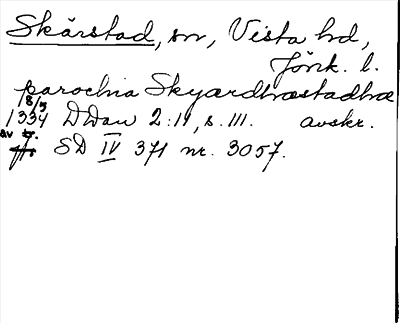 Skärstad, sn, Vista hd,
Jönk. l.
parochia Skyærdhæstadhæ
18/3
1334 DDan 2:11, s. 111. avskr.
av tr.
SD IV 371 nr. 3057.